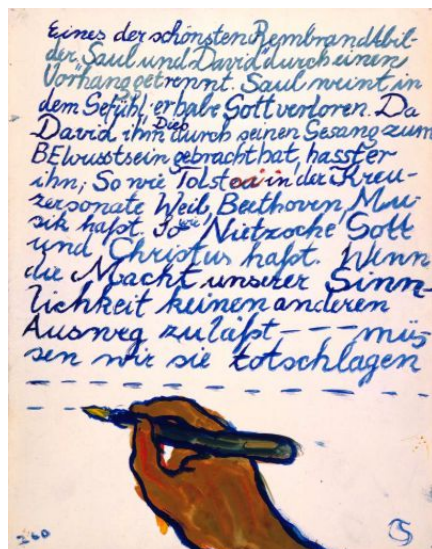 Eines der schönsten Rembrandtbil-
der, Saul und David durch einen
Vorhang getrennt. Saul weint in
dem Gefühl, er habe Gott verloren. Da
David ihm Dies durch seinen Gesang zum
BEwusstsein gebracht hat, hasst er
ihn; So wie Tolstoi in der Kreu-
zersonate Weil, Beethoven, Mu-
sik haßt. So wie Nietzsche Gott
und Christus haßt. Wenn
die Macht unserer Sinn-
lichkeit keinen anderen
Ausweg zuläßt - - - müs-
sen wir sie totschlagen
260
CS